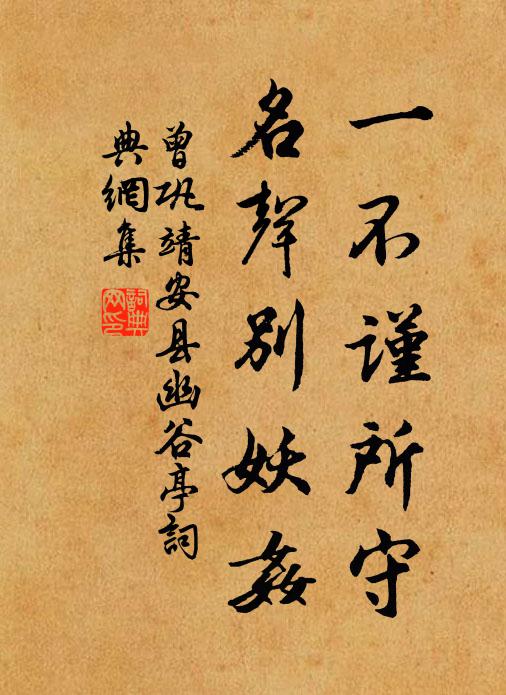 一不谨所守
名聲別妖姦
曾巩靖安县幽谷亭詞
典網集
詞典網印